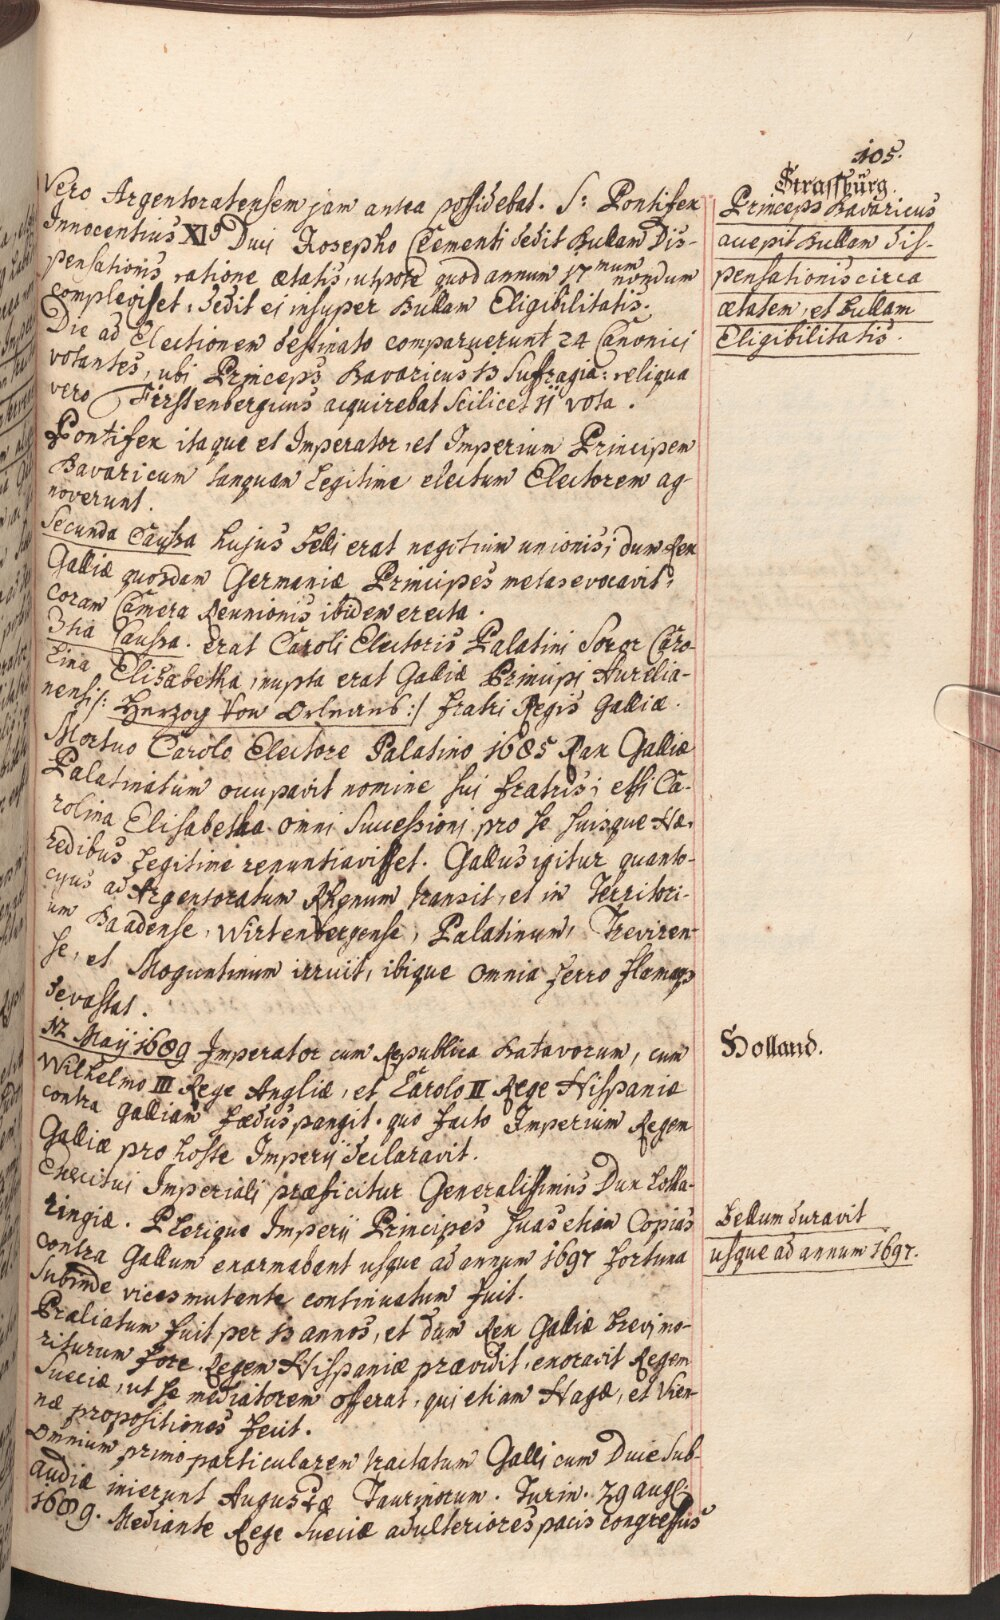 105.
Strassbürg.
Vero Argentoratensem jam antea possidebat. S: Pontifex
Innocentius XIg Duci Josepho Clementi dedit Bullam Dis-
pensationis ratione ætatis, utpote quod annum 17num nondum
complevisset, dedit ei insuper Bullam Eligibilitatis.
Die ad Electionem destinato comparuerunt 24 Canonici
votantes, ubi Princeps Bavaricus 13 Suffragia: reliqua
vero Firstenbergius acquirebat scilicet 11 vota.
Pontifex itaque et Imperator, et Imperium Principem
Bavaricum tanquam legitime electum Electorem ag-
noverunt.
Secunda Caussa hujus belli erat negotium unionis; dum Rex
Galliæ quosdam Germaniæ Principes metas evocavit,
coram Camera Reunionis ibidem erecta.
3tia Caussa. erat Caroli Electoris Palatini Soror Caro-
lina Elisabetha, nupta erat Galliæ Principi Aurelia-
nensi /: Herzog von Orleans :/ fratri Regis Galliæ.
Mortuo Carolo Electore Palatino 1685 Rex Galliæ
Palatinatum occupavit nomine sui fratris; etsi Ca-
rolina Elisabetha omni Successioni pro se suisque Hæ-
redibus legitime renuntiavisset. Gallus igitur quanto-
cyus ad Argentoratum Rhenum transit, et in Territori-
um Baadense, Wirtenbergense, Palatinum, Treviren-
se, et Moguntinum irruit, ibique omnia ferro flamaqs
devastat.
12 Maij 1689 Imperator cum Republica Batavorum, cum
Wilhelmo III Rege Angliæ, et Carolo II Rege Hispaniæ
contra galliam fædus pangit. quo facto Imperium Regem
Galliæ pro hoste Imperij declaravit.
Exercitui Imperiali præficitur Generalissimus Dux Lotha-
ringiæ. Plerique Imperij Principes suas etiam Copias
contra Gallum enarmabant usque ad annum 1697 fortuna
subinde vices mutente continuatum fuit.
Præliatum fuit per 13 annos, et dum Rex Galliæ brevi mo-
riturum fore Regem Hispaniæ prævidit, exoravit Regem
Sueciæ, ut se mediatorem offerat, qui etiam Hagæ, et Vien-
næ propositiones fecit.
Omnium primo particularem tractatum Galli cum Duce Sub-
audiæ inierunt Augustæ Taurinorum. Turin. 29 augs.
1689. Mediante Rege Sueciæ adulteriores pacis congressus
Princeps Bavaricus
accepit Bullam dis-
pensationis circa
ætatem, et Bullam
Eligibilitatis.
Holland.
Bellum duravit
usque ad annum 1697.